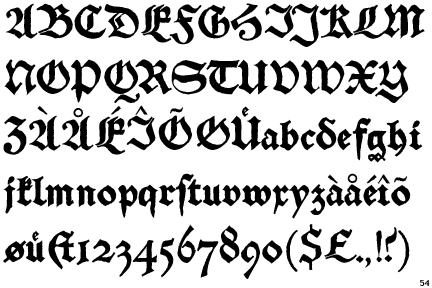 ABCDEFGHIJKLM
NOPQRSTUVWXY
ZÀÅÉÎÕØŮabcdefghi
jklmnopqrſtuvwxyzàåéîõ
øů&1234567890($£.,!?)
54